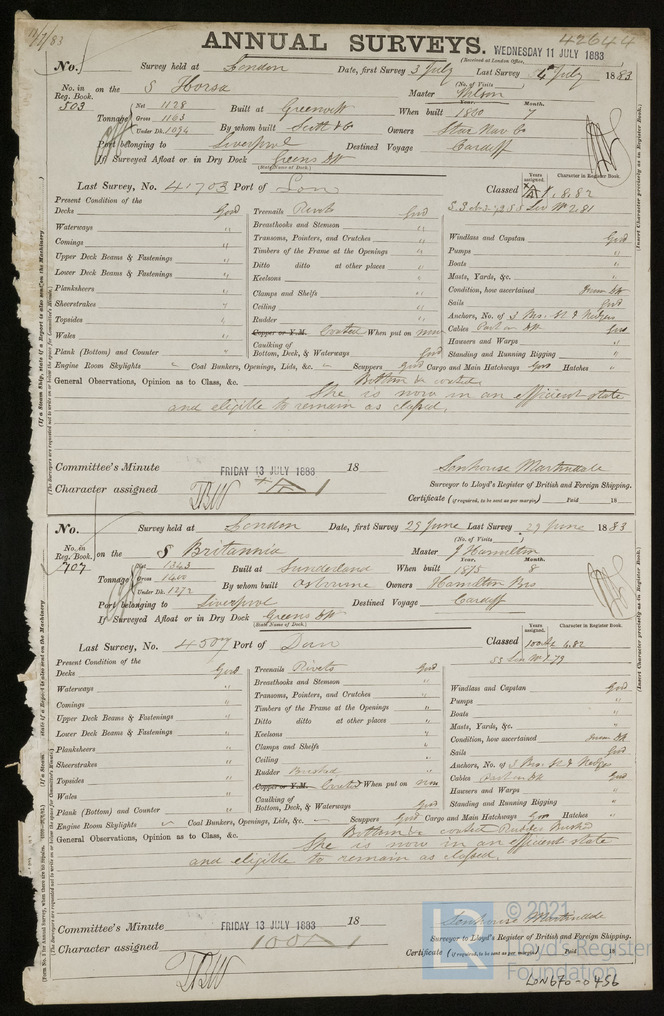 11/7/83
42644
ANNUAL SURVEYS.
(Received at London Office,
WEDNESDAY 11 JULY 1883
No. Survey held at London Date, first Survey 3 July Last Survey 4 July 1883
(No. of Visits )
No. in Reg. Book. on the S Horsa Master Wilson
503
Tonnage Net 1128 Built at Greenock When built Year. 1860 Month. 7
Gross 1163
Under Dk. 1094 By whom built Scott & Co Owners Star Nav Co
Port belonging to Liverpool Destined Voyage Cardiff
If Surveyed Afloat or in Dry Dock Greens DD
(State Name of Dock.)
Last Survey, No. 41703 Port of Lon Classed
Years assigned. Character in Register Book.
Present Condition of the
Decks Good
Waterways "
Comings "
Upper Deck Beams & Fastenings "
Lower Deck Beams & Fastenings "
Planksheers "
Sheerstrakes "
Topsides "
Wales "
Plank (Bottom) and Counter "
Treenails Rivets Good
Breasthooks and Stemson "
Transoms, Pointers, and Crutches "
Timbers of the Frame at the Openings "
Ditto ditto at other places "
Keelsons "
Clamps and Shelfs "
Ceiling "
Rudder "
Copper or Y.M. Coated When put on now
Caulking of
Bottom, Deck, & Waterways Good
Windlass and Capstan Good
Pumps "
Boats "
Masts, Yards, &c. "
Condition, how ascertained from Dk
Sails Good
Anchors, No. of 3 Brs. St & Kedges
Cables Part on Dk Good
Hawsers and Warps "
Standing and Running Rigging "
Engine Room Skylights " Coal Bunkers, Openings, Lids, &c. " Scuppers Good Cargo and Main Hatchways Good Hatches "
General Observations, Opinion as to Class, &c. Bottom coated.
She is now in an efficient state
and eligible to remain as classed.
Committee's Minute FRIDAY 13 JULY 1883 18
Character assigned
Surveyor to Lloyd's Register of British and Foreign Shipping.
Certificate (if required, to be sent as per margin) Paid 18
No. Survey held at London Date, first Survey 29 June Last Survey 29 June 1883
(No. of Visits )
No. in Reg. Book. on the S Britannia Master J Hamilton
707
Tonnage Net 1343 Built at Sunderland When built Year. 1875 Month. 8
Gross 1400
Under Dk. 1272 By whom built Osbourne Owners Hamilton Bros
Port belonging to Liverpool Destined Voyage Cardiff
If Surveyed Afloat or in Dry Dock Greens DD
(State Name of Dock.)
Last Survey, No. 4507 Port of Dun Classed 100A1 4,82
Years assigned. Character in Register Book.
Present Condition of the
Decks Good
Waterways "
Comings "
Upper Deck Beams & Fastenings "
Lower Deck Beams & Fastenings "
Planksheers "
Sheerstrakes "
Topsides "
Wales "
Plank (Bottom) and Counter "
Treenails Rivets Good
Breasthooks and Stemson "
Transoms, Pointers, and Crutches "
Timbers of the Frame at the Openings "
Ditto ditto at other places "
Keelsons "
Clamps and Shelfs "
Ceiling "
Rudder Bushed
Copper or Y.M. Coated When put on now
Caulking of
Bottom, Deck, & Waterways Good
Windlass and Capstan Good
Pumps "
Boats "
Masts, Yards, &c. "
Condition, how ascertained from Dk
Sails Good
Anchors, No. of 3 Brs. St & Kedges
Cables Part on Dk Good
Hawsers and Warps "
Standing and Running Rigging "
Engine Room Skylights " Coal Bunkers, Openings, Lids, &c. " Scuppers Good Cargo and Main Hatchways Good Hatches "
General Observations, Opinion as to Class, &c. Bottom coated Rudder Bushed
She is now in an efficient state
and eligible to remain as classed.
Committee's Minute FRIDAY 13 JULY 1883 18
Character assigned 100A1
Surveyor to Lloyd's Register of British and Foreign Shipping.
Certificate (if required, to be sent as per margin) Paid 18
© 2021
Lloyd's Register
Foundation
LON670-0456